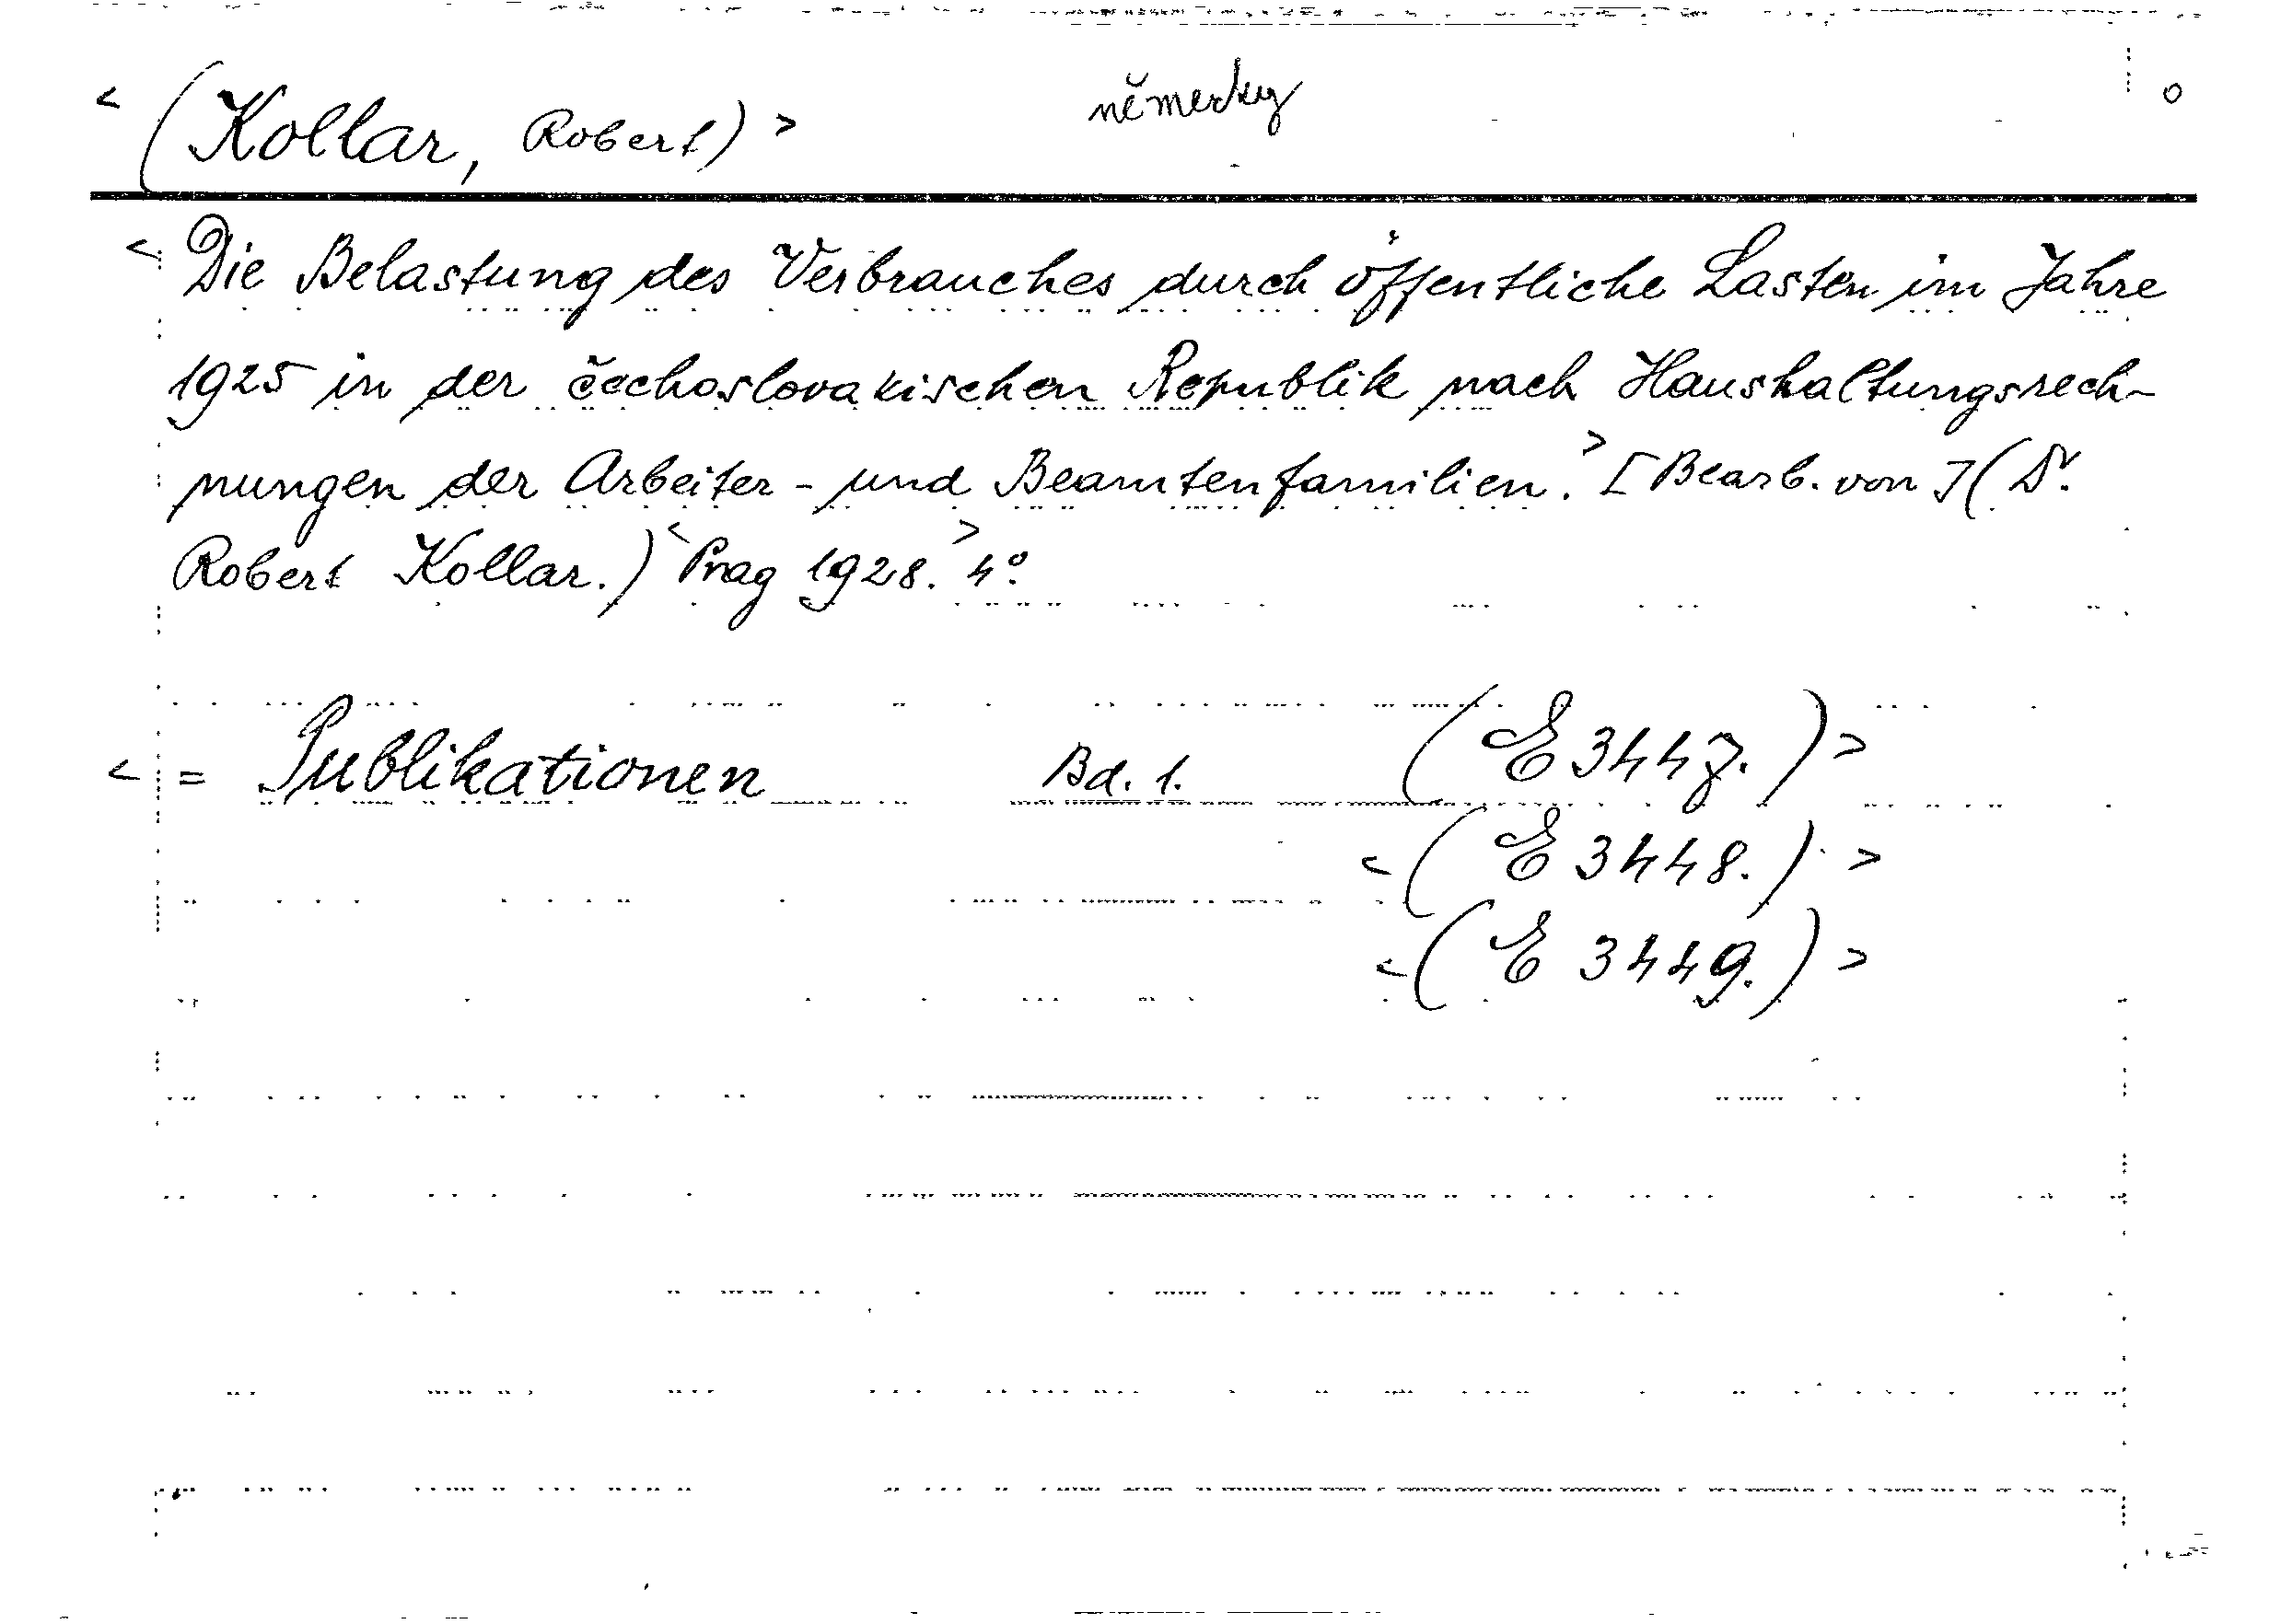 < (Kollar, Robert) > německy o
< Die Belastung des Verbrauches durch öffentliche Lasten im Jahre
1925 in der čechoslovakischen Republik nach Haushaltungsrech-
nungen der Arbeiter- und Beamtenfamilien. > [Bearb. von] (Dr.
Robert Kollar.) < Prag 1928. > 4°.
< = Publikationen Bd. 1. (E 3447.) >
< (E 3448.) >
< (E 3449.) >